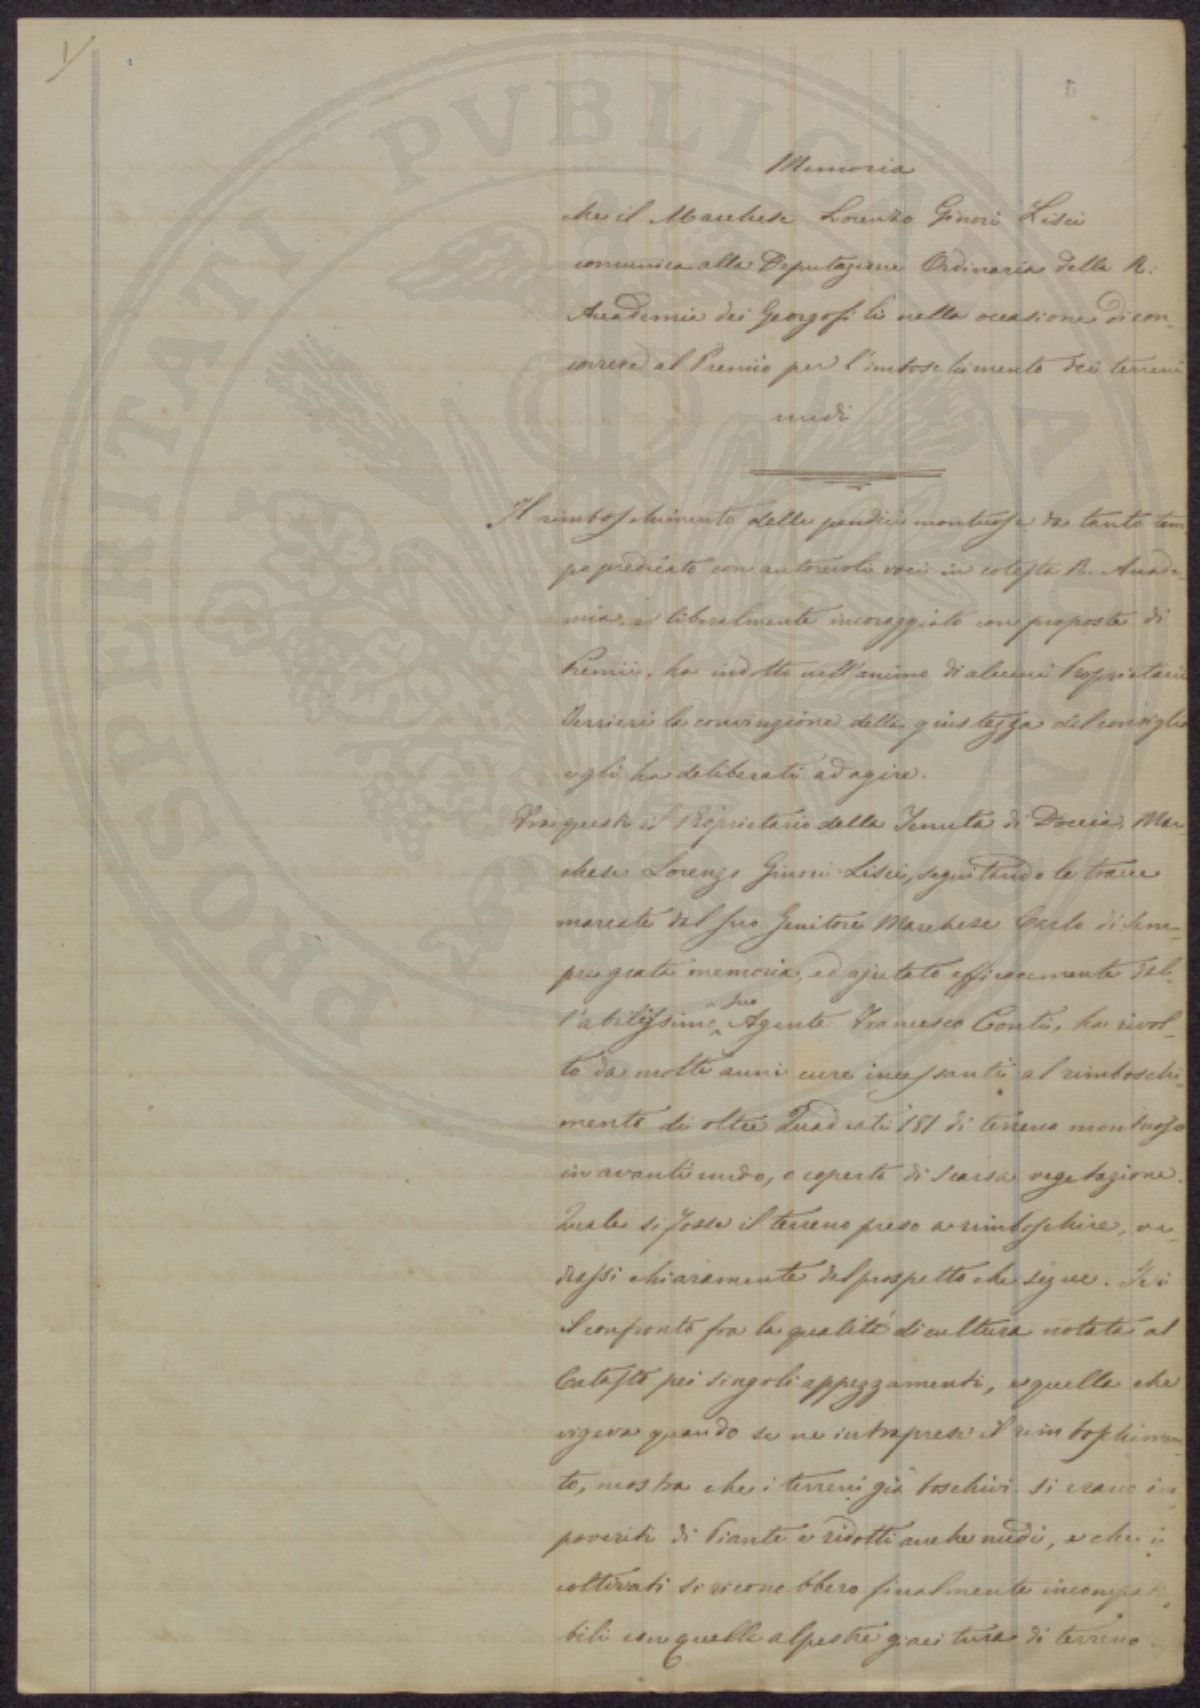 1/
5
PROSPERITATI PUBLICAE AUGENDAE
Memoria
che il Marchese Lorenzo Ginori Lisci
comunica alla Deputazione Ordinaria della R.
Accademia dei Georgofili nella occasione di con-
correre al Premio per l'imboschimento dei terreni
nudi
Il rimboschimento delle pendici montuose da tanto tem
po predicato con autorevoli voci in cotesta R. Accade-
mia, e liberalmente incoraggiato con proposte di
Premii, ha indotto nell'animo di alcuni Proprietarii
Terrieri la convinzione della giustezza del consiglio
e gli ha deliberati ad agire.
Fra questi il Proprietario della Tenuta di Doccia, Mar-
chese Lorenzo Ginori Lisci, seguitando le tracce
marcate dal suo Genitore Marchese Carlo di sem-
pre grata memoria, ed ajutato efficacemente dal-
l'abilissimo suo Agente Francesco Conti, ha rivol-
to da molti anni cure incessanti al rimboschi-
mento di oltre Quadrati 181 di terreno montuoso
in avanti nudo, o coperto di scarsa vegetazione.
Quale si fosse il terreno preso a rimboschire, ve-
drassi chiaramente dal prospetto che segue. Ivi
il confronto fra la qualità di cultura notata al
Catasto pei singoli appezzamenti, e quella che
vigeva quando se ne intraprese il rimboschimen-
to, mostra che i terreni già boschivi si erano im-
poveriti di Piante e ridotti anche nudi, e che i
coltivati si riconobbero finalmente incompati-
bili con quelle alpestre giacitura di terreno.